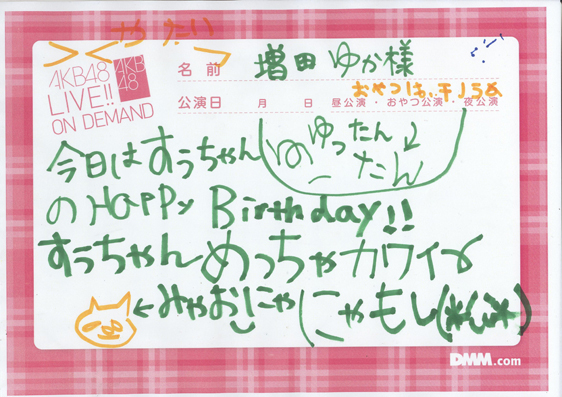 やったい
AKB48
LIVE!!
ON DEMAND
AKB
48
名前 増田ゆか様
おやつは、干しうめ
公演日 月 日 昼公演・おやつ公演・夜公演
ゆったん
たん
今日はすぅちゃん
のHAPPY Birthday!!
すぅちゃんめっちゃカワイィ
←みゃおにゃにゃもし(*ω*)
DMM.com